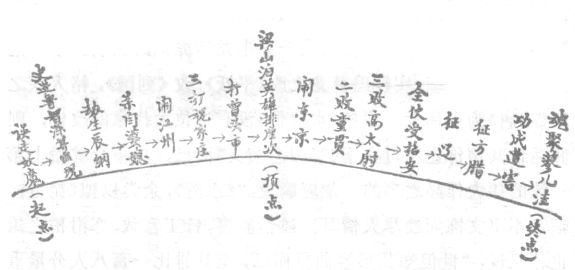 误走妖魔(起点)
史进鲁智深等出现
劫生辰綱
杀闫婆惜
闹江州
三打祝家庄
打曾头市
梁山泊英雄排座次(顶点)
闹东京
二败童贯
三败高太尉
全伙受招安
征辽
征方腊
功成遭害
魂聚蓼儿洼(终点)